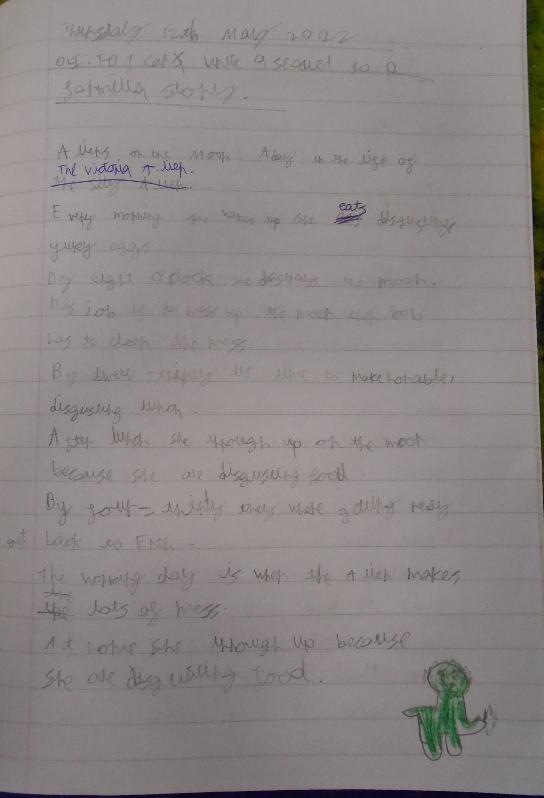 Thursday 12th May 2022
obj: TO I can write a sequel to a
familla story.
Aliens on the Moon: A day in the life of
The victoria A lien.
the silly A lien.
Every morning she wakes up she eats disgusting
yukey eggs.
By eight O'clock she destroys the moon.
His job is to mess up the moon and Bob
has to cleen the mess.
By twelve-thirty is time to make horrable,
disgusting lunch.
After lunch she through up on the moon
because she ate disgusting food.
By four=thirdy they where geting redy
get back to Erth.
The worsing day is when the A lien makes
the lots of mess.
At home she through up because
she ate disgusting food.